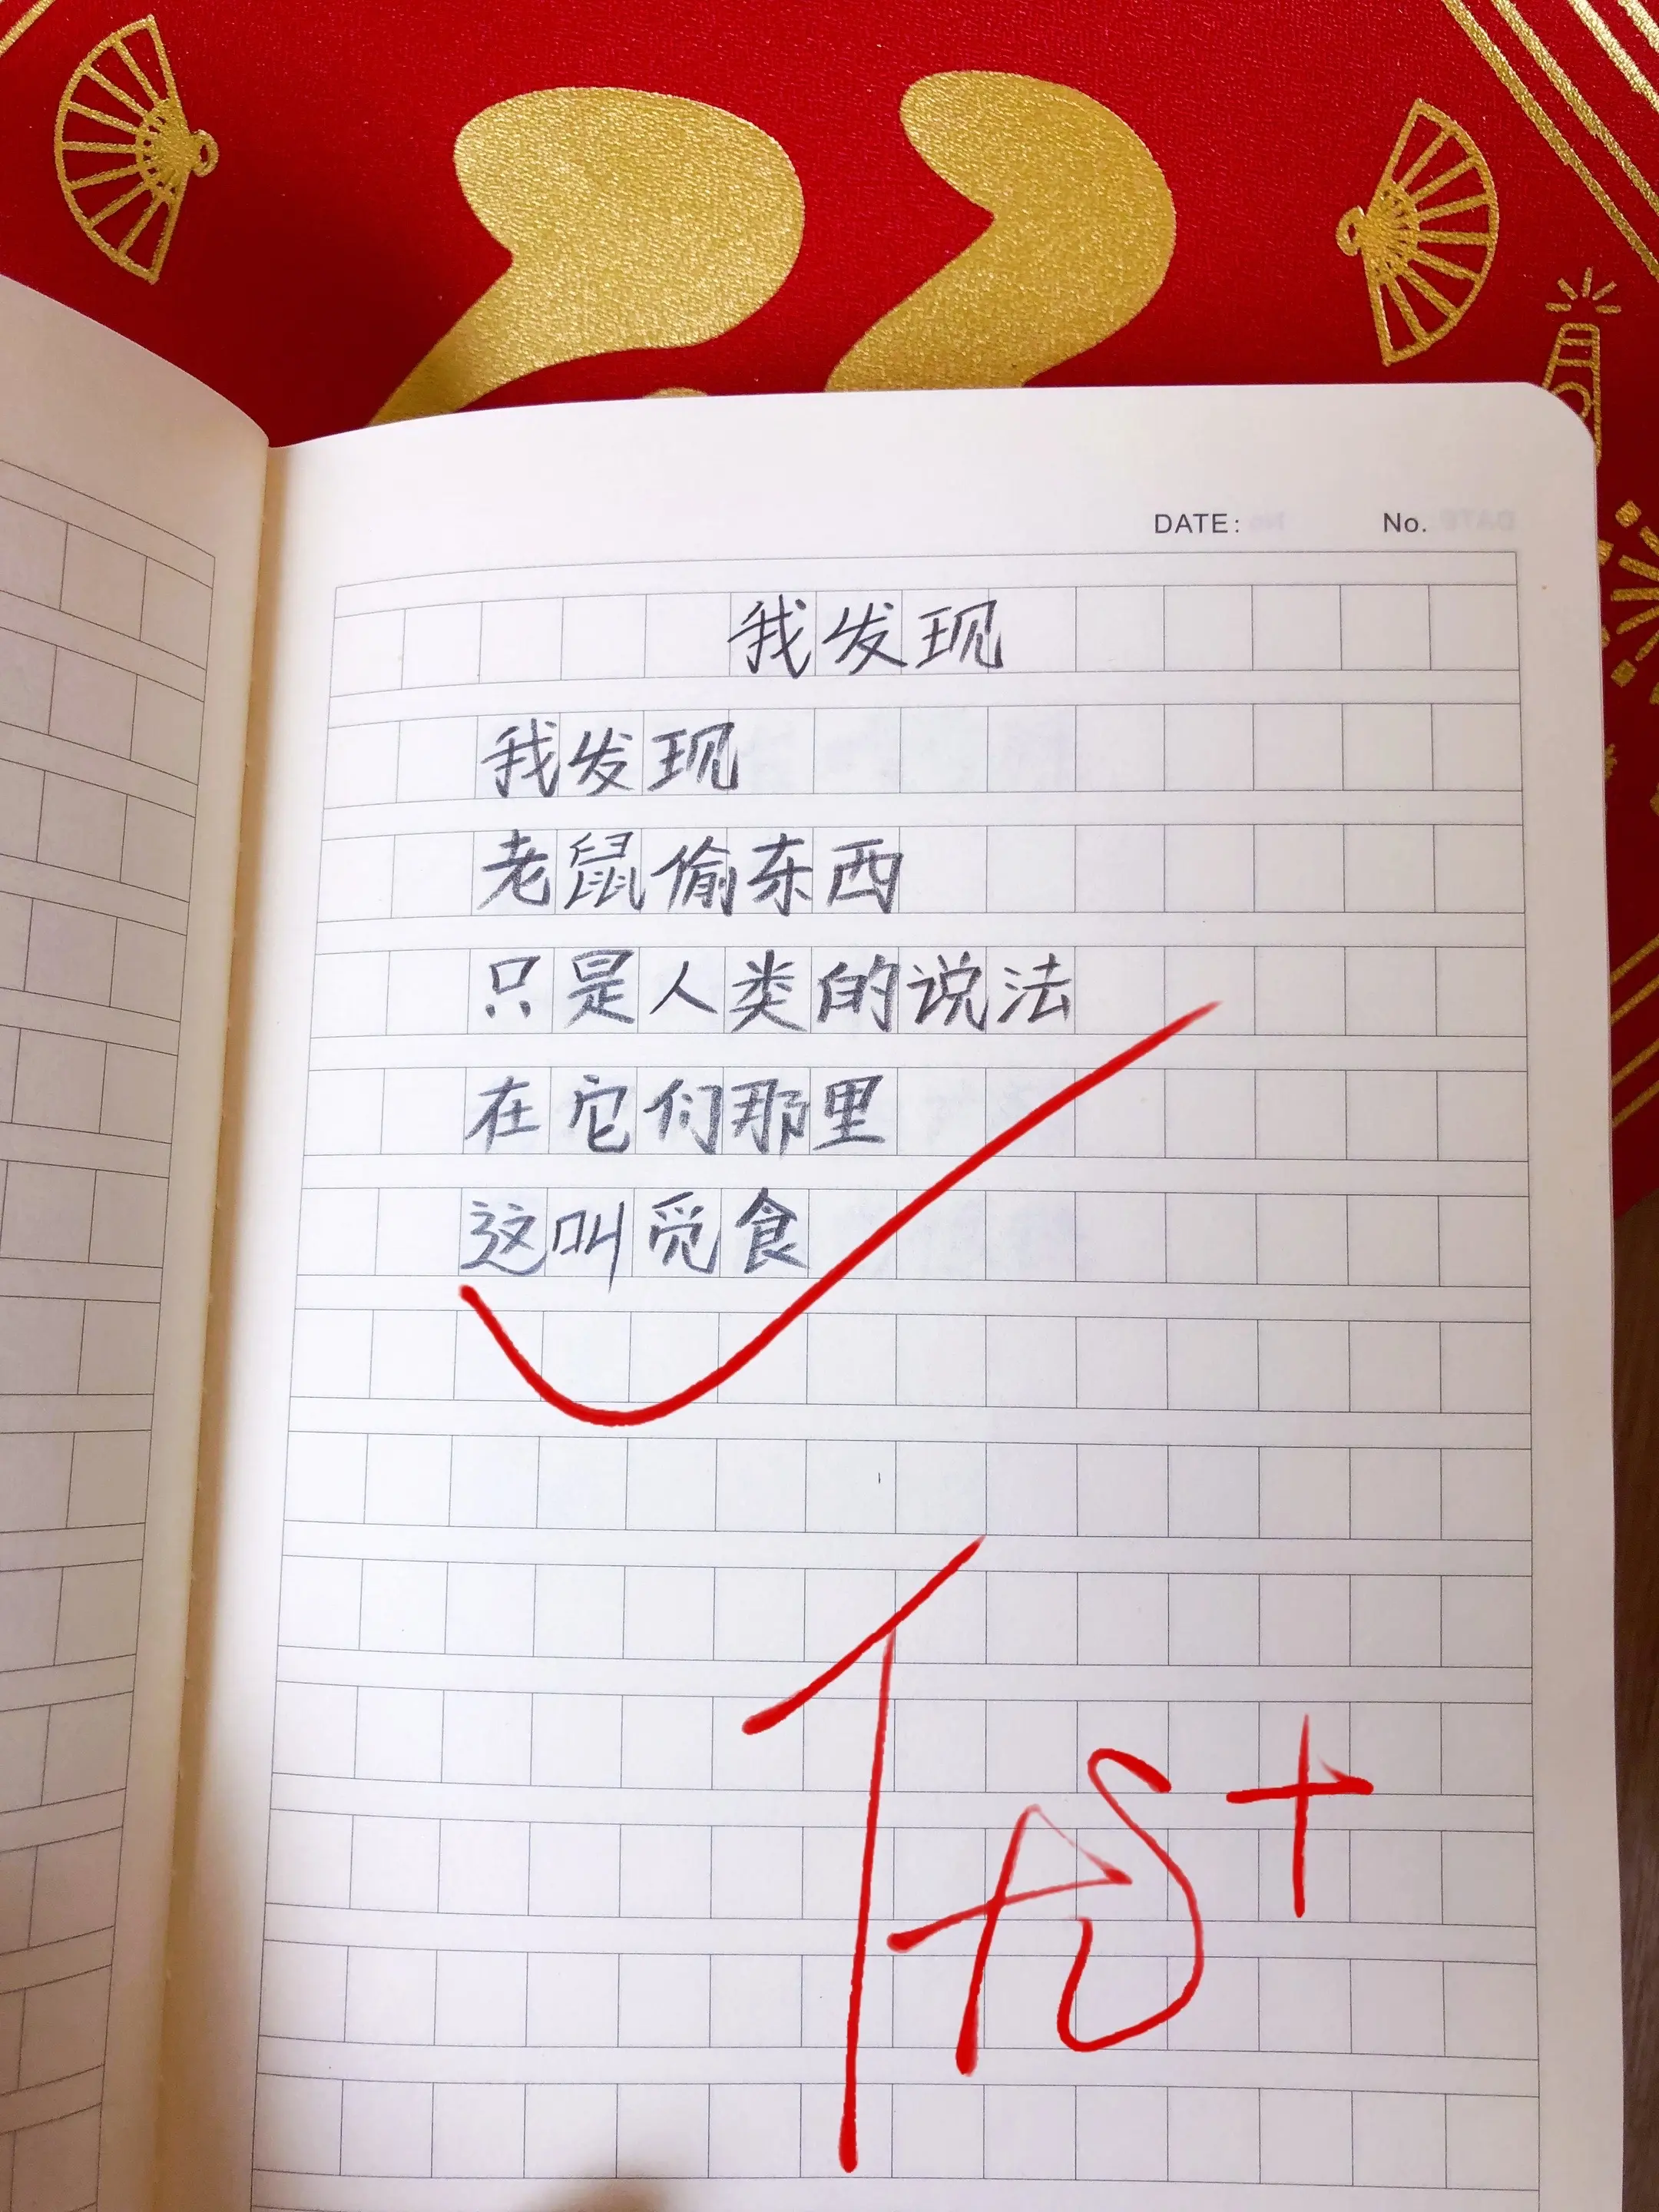 DATE: No.
我发现
我发现
老鼠偷东西
只是人类的说法
在它们那里
这叫觅食